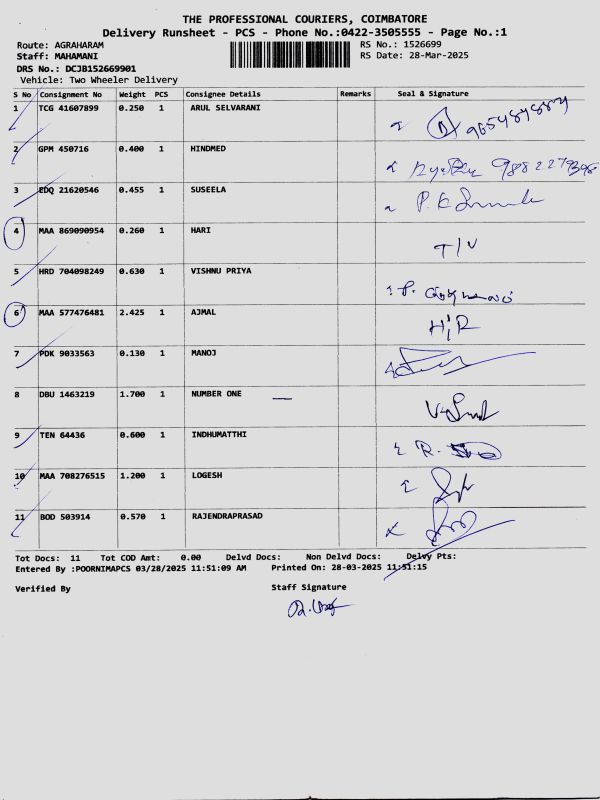 THE PROFESSIONAL COURIERS, COIMBATORE
Delivery Runsheet - PCS - Phone No.:0422-3505555 - Page No.:1
Route: AGRAHARAM RS No.: 1526699
Staff: MAHAMANI RS Date: 28-Mar-2025
DRS No.: DCJB152669901
Vehicle: Two Wheeler Delivery
S No Consignment No Weight PCS Consignee Details Remarks Seal & Signature
1 TCG 41607899 0.250 1 ARUL SELVARANI
2 GPM 450716 0.400 1 HINDMED
3 EDQ 21620546 0.455 1 SUSEELA
4 MAA 869090954 0.260 1 HARI T/V
5 HRD 704098249 0.630 1 VISHNU PRIYA
6 MAA 577476481 2.425 1 AJMAL H/R
7 PDK 9033563 0.130 1 MANOJ
8 DBU 1463219 1.700 1 NUMBER ONE
9 TEN 64436 0.600 1 INDHUMATTHI
10 MAA 708276515 1.200 1 LOGESH
11 BOD 503914 0.570 1 RAJENDRAPRASAD
Tot Docs: 11 Tot COD Amt: 0.00 Delvd Docs: Non Delvd Docs: Delvy Pts:
Entered By :POORNIMAPCS 03/28/2025 11:51:09 AM Printed On: 28-03-2025 11:51:15
Verified By Staff Signature